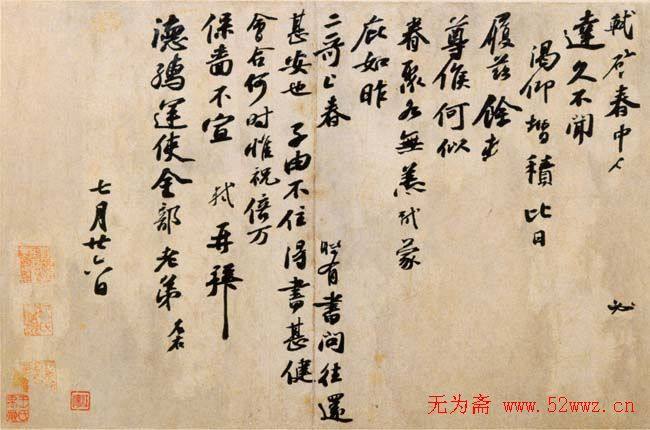 軾啓春中 必
達久不聞
渴仰增積比日
履茲餘
尊候何似
眷聚各無恙軾蒙
庇如昨
二哥上春 時有書問往還
甚安也 子由不住得書甚健
會合何時惟祝倍万
保嗇不宣 軾再拜
德孺運使金部老弟
七月廿六日
无为斋 www.52wwz.cn